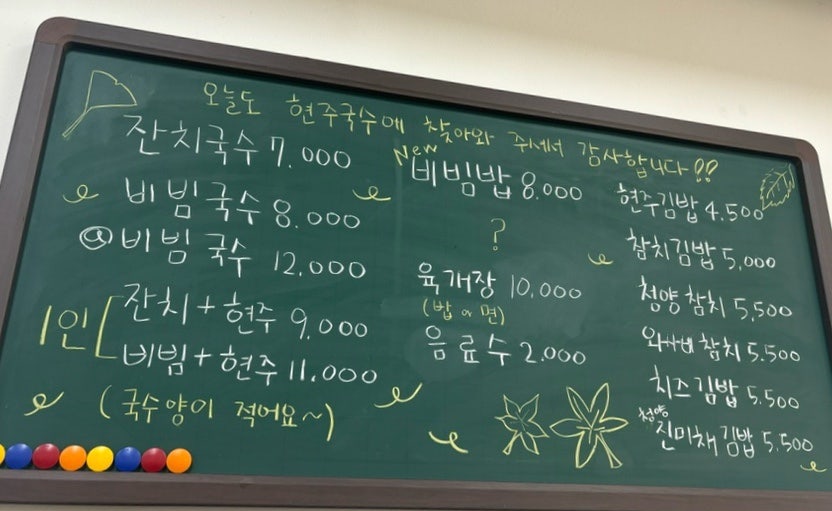 오늘도 현주국수에 찾아와 주셔서 감사합니다!!
잔치국수 7.000
비빔국수 8.000
비빔국수 12.000
1인
잔치+현주 9.000
비빔+현주 11.000
(국수양이 적어요~)
New
비빔밥 8.000
?
육개장 10,000
(밥 or 면)
음료수 2.000
현주김밥 4.500
참치김밥 5,000
청양참치 5,500
와사비참치 5.500
치즈김밥 5.500
청양
진미채김밥 5.500